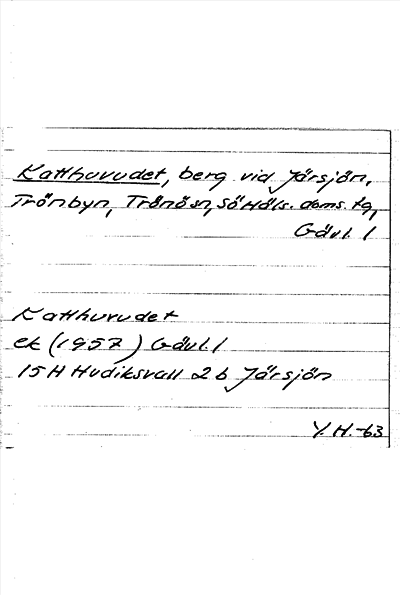 Katthuvudet, berg vid Järsjön,
Trönbyn, Trönö sn, Sö Häls. doms. tg,
Gävl. l
Katthuvudet
ek (1957) Gävl. l
15H Hudiksvall 2b Järsjön
Y. H. -63